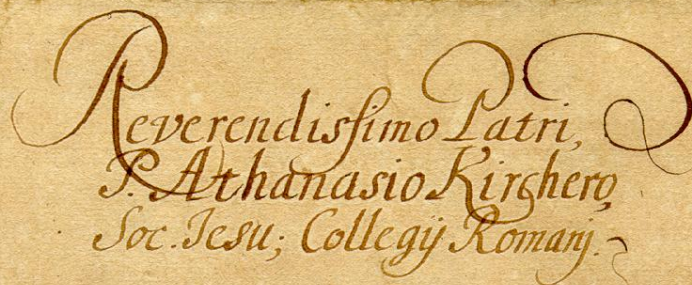 Reverendissimo Patri,
P. Athanasio Kirchero,
Soc. Iesu; Collegij Romanj.